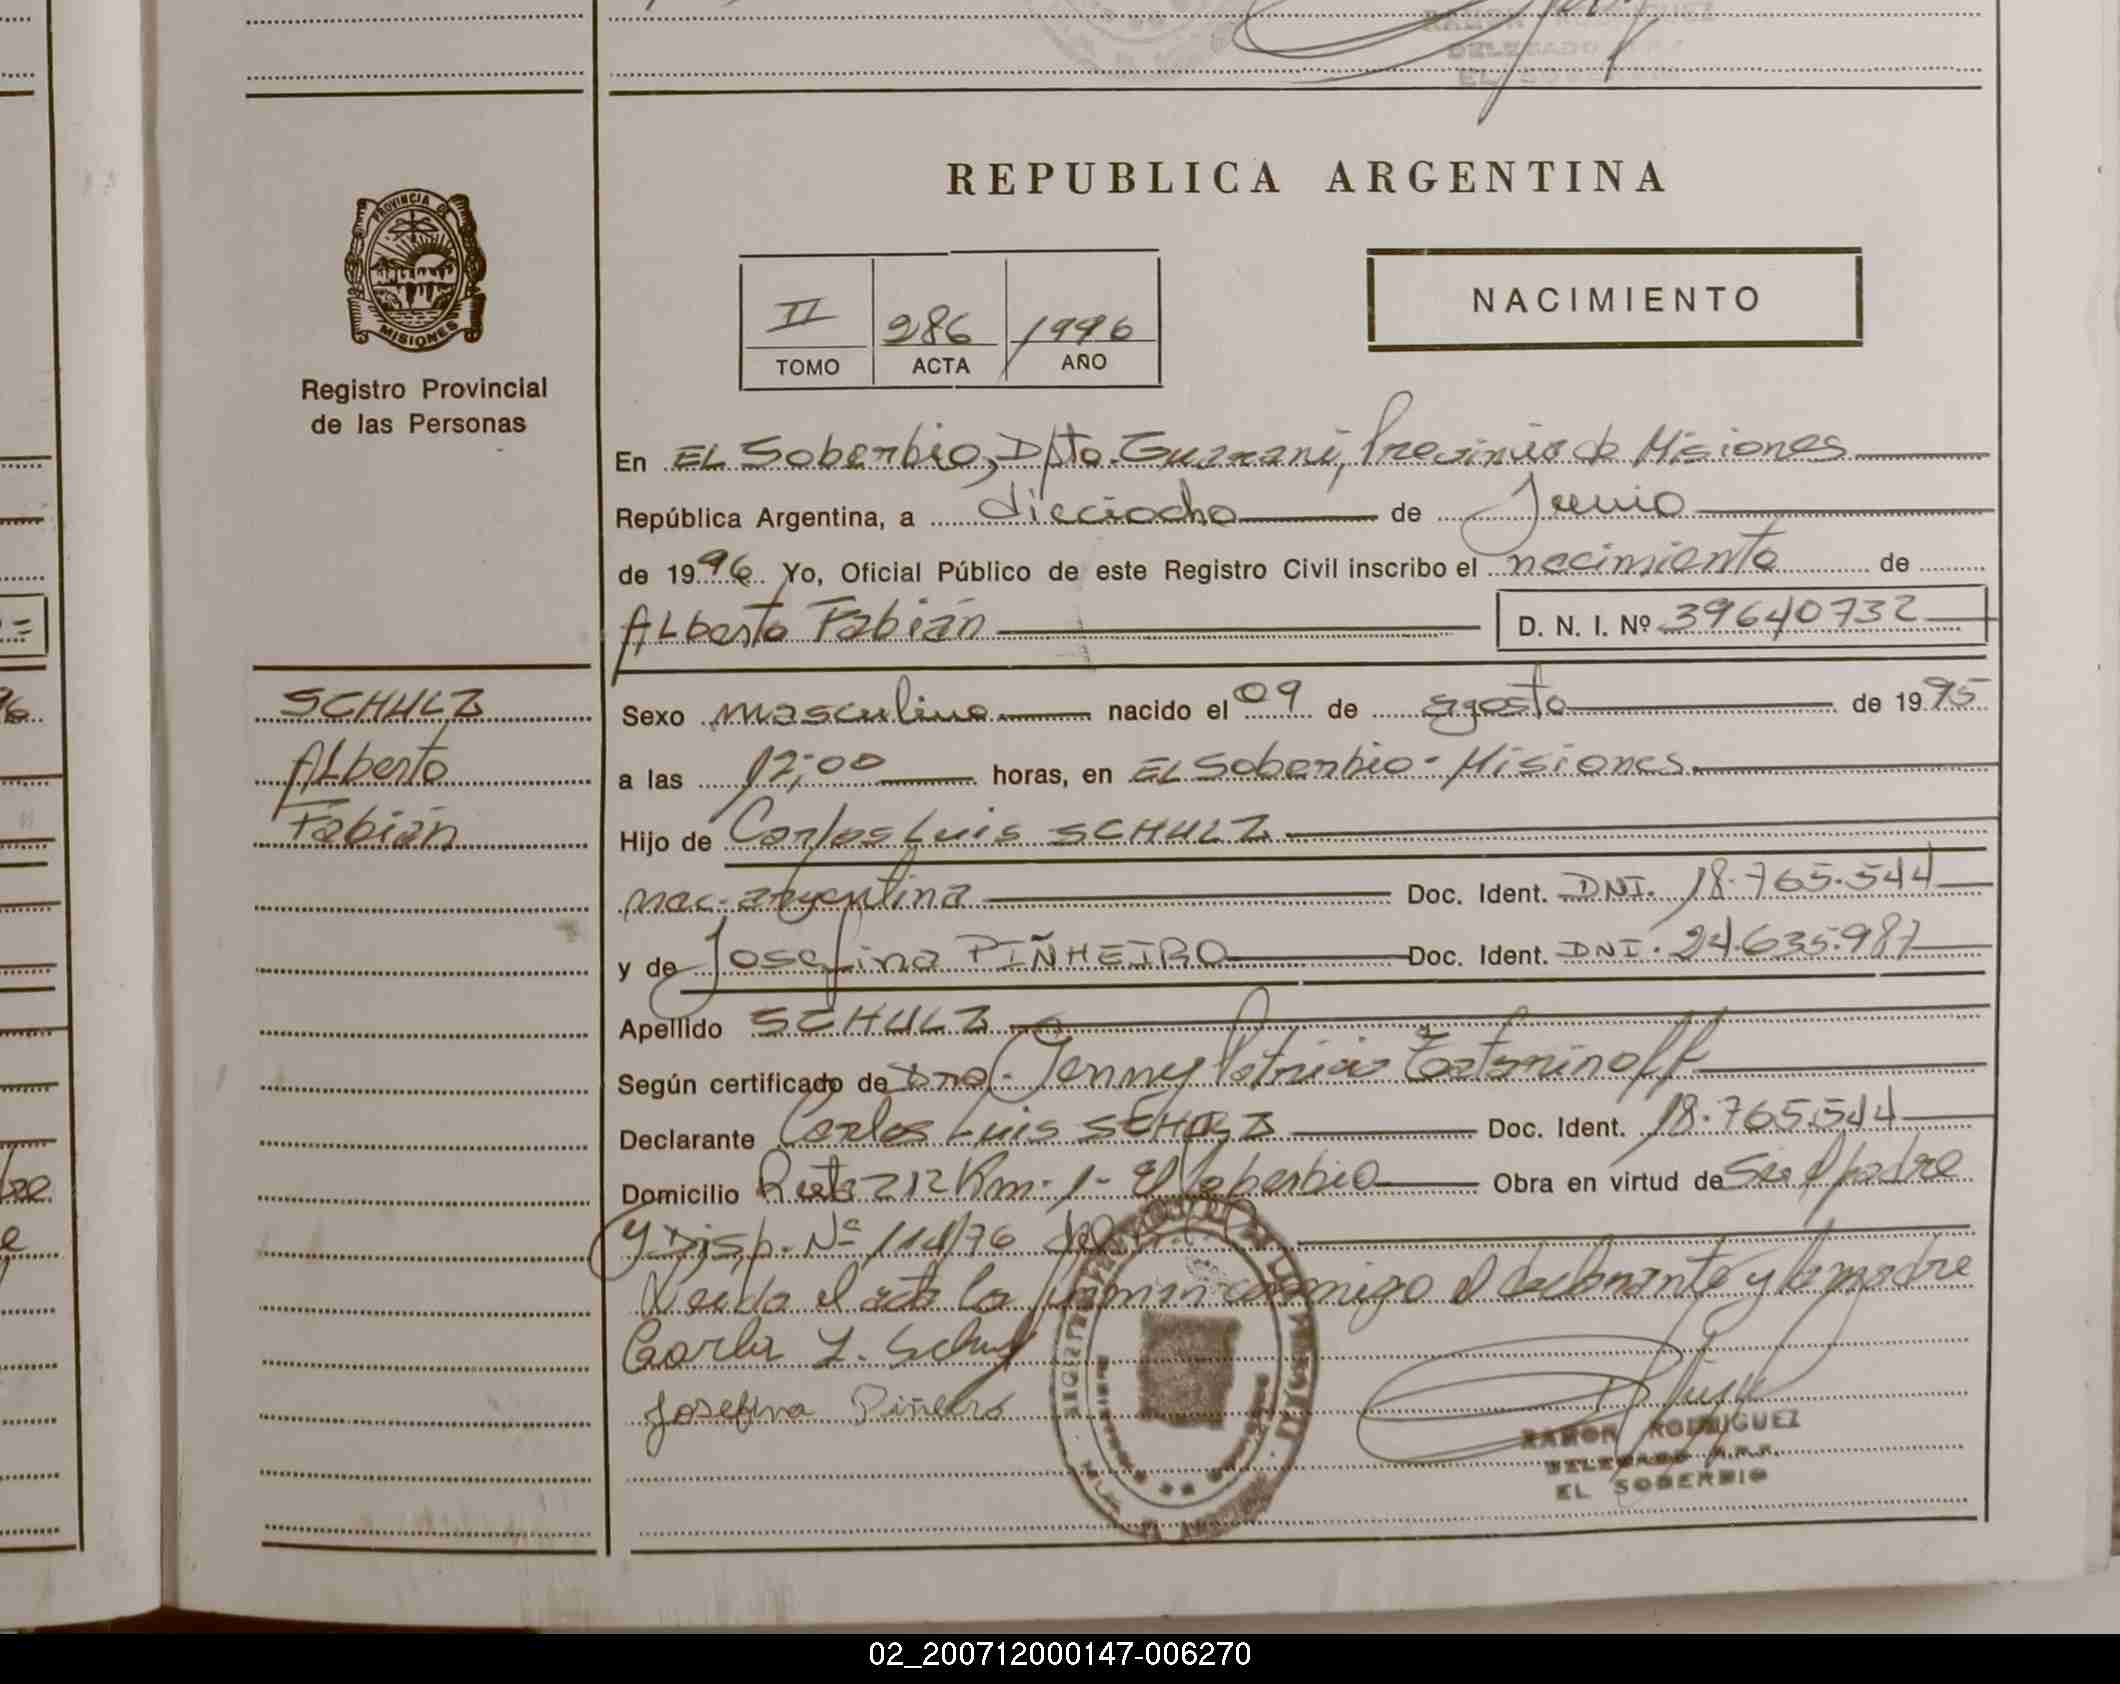 REPUBLICA ARGENTINA
PROVINCIA DE
MISIONES
Registro Provincial
de las Personas
II 286 1996
TOMO ACTA AÑO
NACIMIENTO
En EL Soberbio, Dpto. Guaraní, Provincia de Misiones
República Argentina, a dieciocho de Junio
de 1996 Yo, Oficial Público de este Registro Civil inscribo el nacimiento de
Alberto Fabián D. N. I. Nº 39640732
SCHULZ
Alberto
Fabián
Sexo masculino nacido el 09 de agosto de 1995
a las 12:00 horas, en EL Soberbio - Misiones
Hijo de Carlos Luis SCHULZ
nac. argentina Doc. Ident. DNI. 18.765.544
y de Josefina PIÑHEIRO Doc. Ident. DNI. 24.635.987
Apellido SCHULZ
Según certificado de Dra. Jenny Patricia
Declarante Carlos Luis SCHULZ Doc. Ident. 18.765.544
Domicilio Ruta 212 Km. 1 - El Soberbio Obra en virtud de Ser el padre
y Disp. Nº
Leída el acta la firman conmigo el declarante y la madre
Carlos L. Schulz
Josefina Piñeiro
RAMON RODRIGUEZ
DELEGADO R.P.P.
EL SOBERBIO
02_200712000147-006270